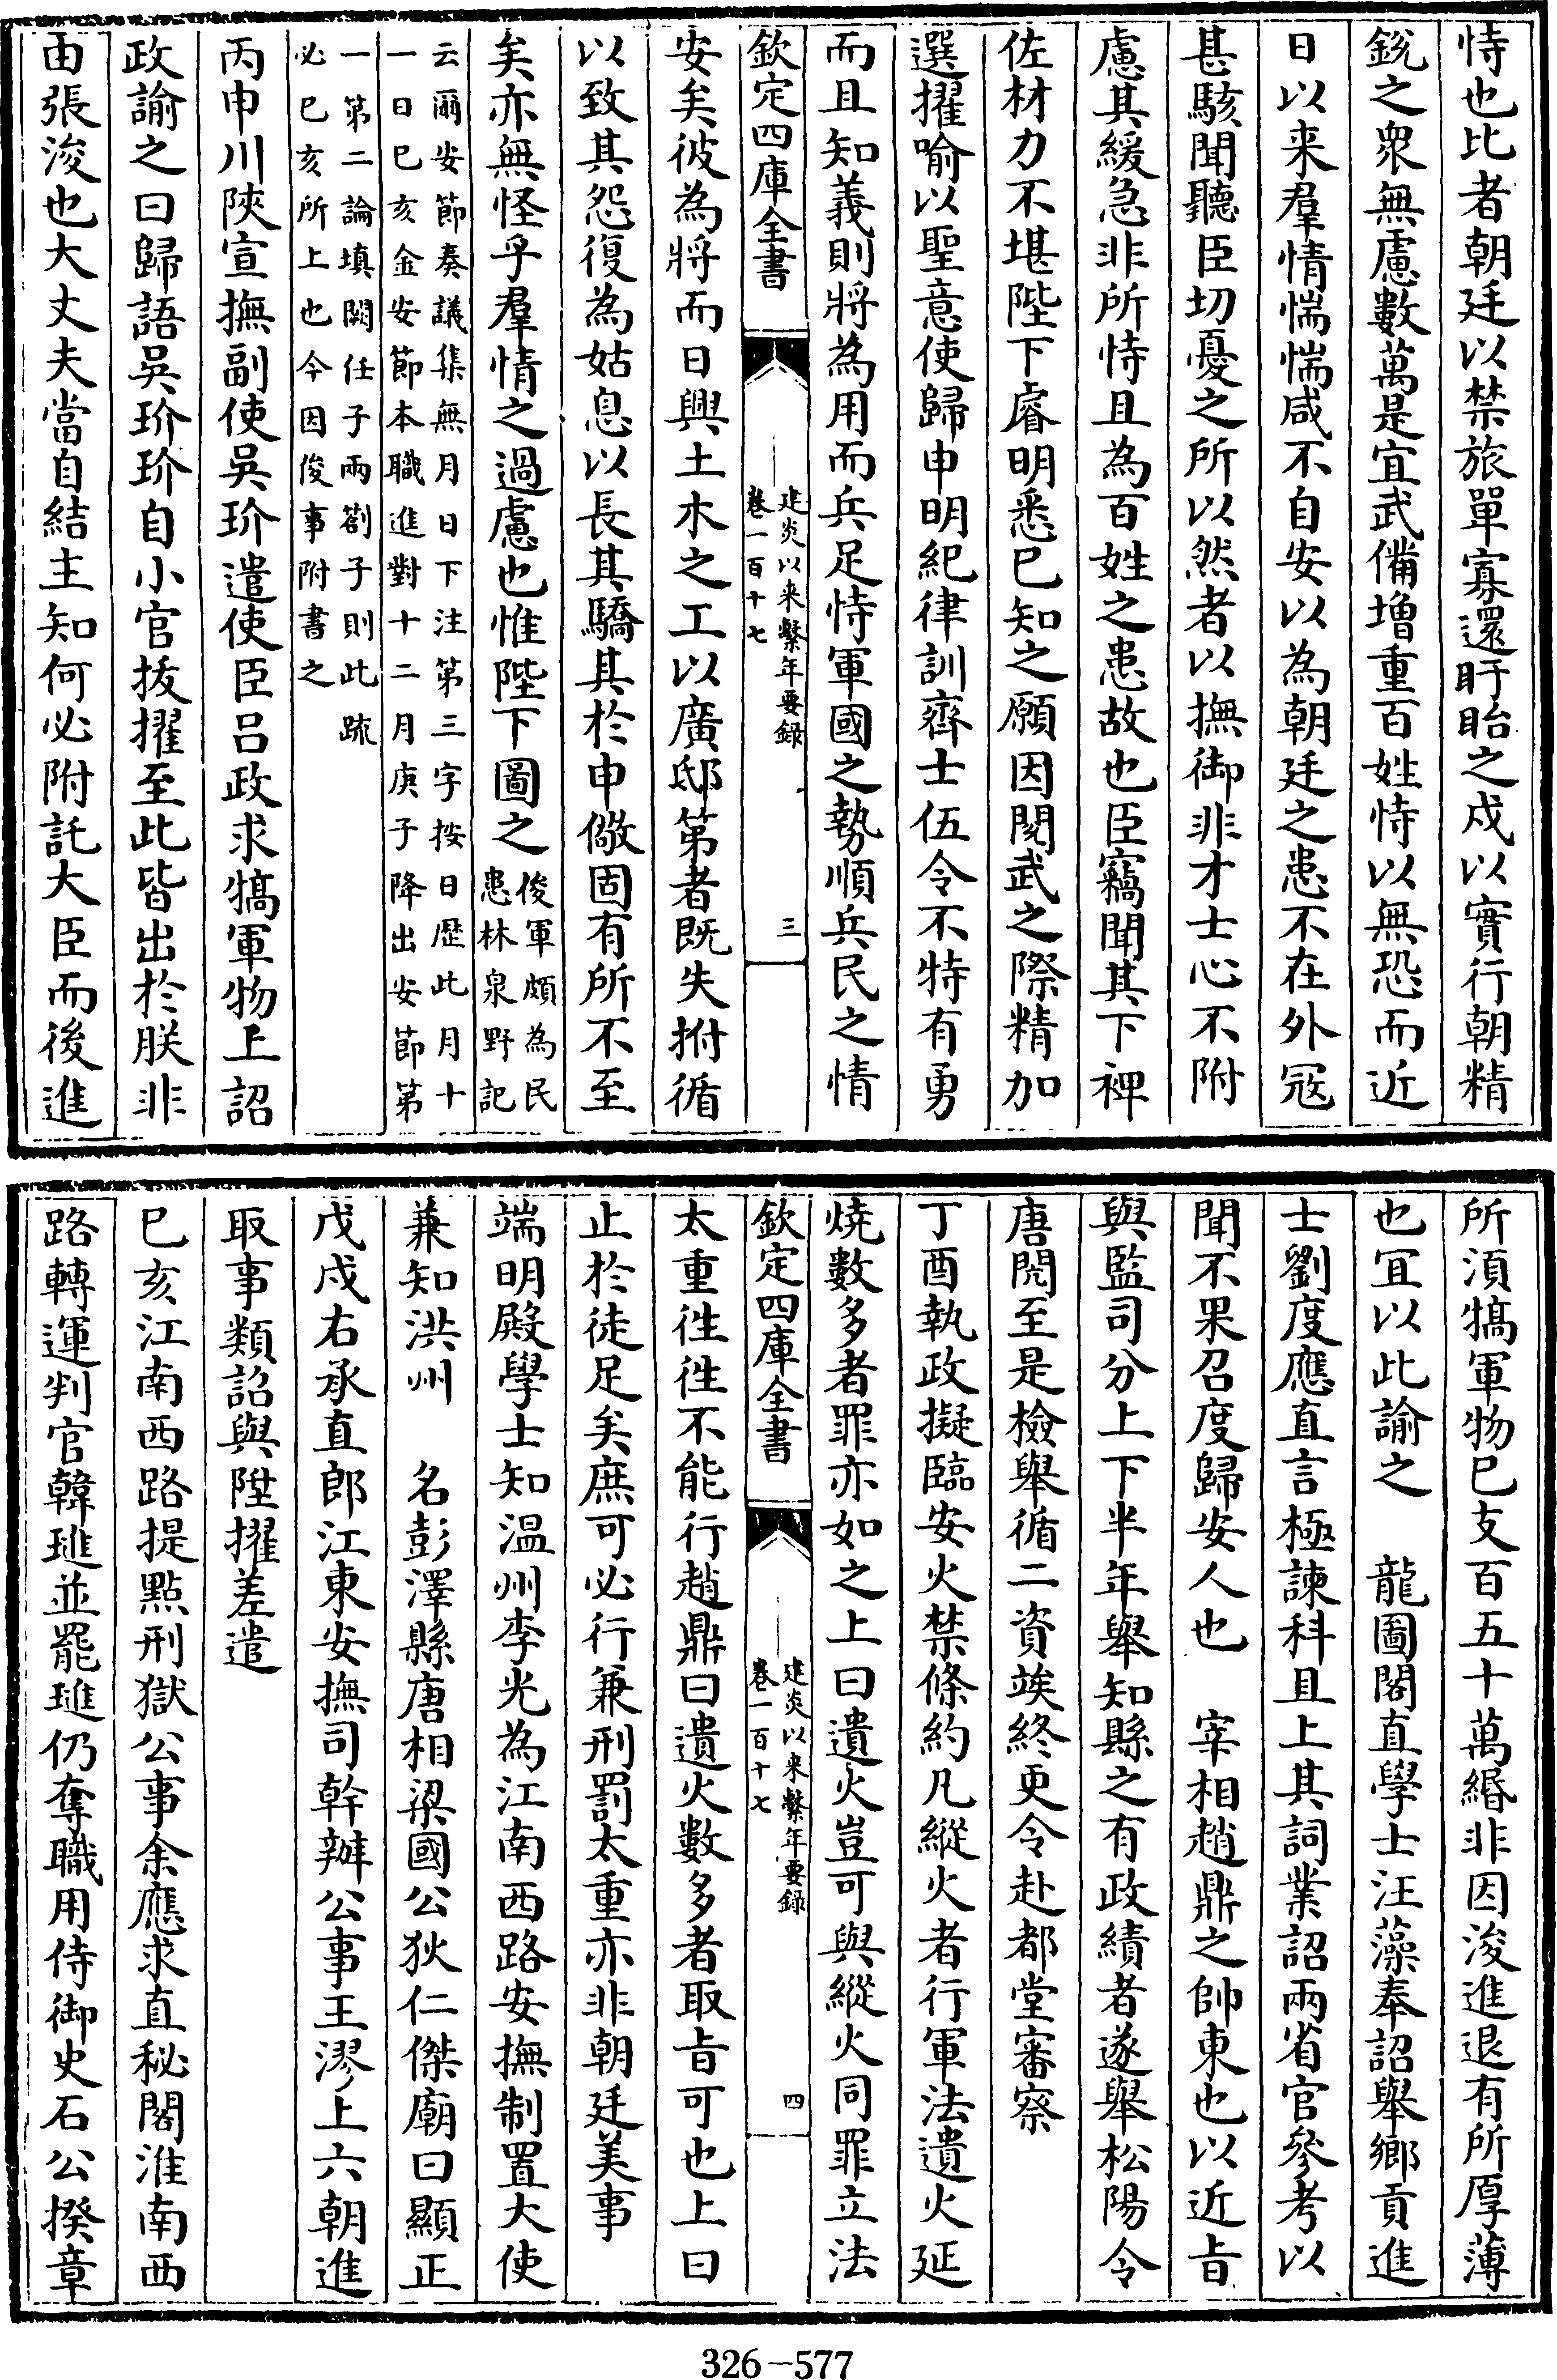 恃也比者朝廷以禁旅單寡還盱眙之戍以實行朝精
鋭之衆無慮數萬是宜武備增重百姓恃以無恐而近
日以来羣情惴惴咸不自安以為朝廷之患不在外冦
甚駭聞聽臣切憂之所以然者以撫御非才士心不附
慮其緩急非所恃且為百姓之患故也臣竊聞其下裨
佐材力不堪陛下睿明悉已知之願因閲武之際精加
選擢喻以聖意使歸申明紀律訓齊士伍令不特有勇
而且知義則將為用而兵足恃軍國之勢順兵民之情
欽定四庫全書
建炎以来繫年要録
卷一百十七
三
安矣彼為將而日興土木之工以廣邸第者既失拊循
以致其怨復為姑息以長其驕其於申儆固有所不至
矣亦無怪乎羣情之過慮也惟陛下圖之
俊軍頗為民
患林泉野記
云爾安節奏議集無月日下注第三字按日歴此月十
一日巳亥金安節本職進對十二月庚子降出安節第
一第二論填闕任子兩劄子則此疏
必巳亥所上也今因俊事附書之
丙申川陜宣撫副使吳玠遣使臣吕政求犒軍物上詔
政諭之曰歸語吳玠玠自小官拔擢至此皆出於朕非
由張浚也大丈夫當自結主知何必附託大臣而後進
所湏犒軍物已支百五十萬緡非因浚進退有所厚薄
也宜以此諭之　龍圖閣直學士汪藻奉詔舉鄉貢進
士劉度應直言極諫科且上其詞業詔兩省官參考以
聞不果召度歸安人也　宰相趙鼎之帥東也以近旨
與監司分上下半年舉知縣之有政績者遂舉松陽令
唐閲至是檢舉循二資竢終更令赴都堂審察
丁酉執政擬臨安火禁條約凡縱火者行軍法遺火延
燒數多者罪亦如之上曰遺火豈可與縱火同罪立法
欽定四庫全書
建炎以来繫年要録
卷一百十七
四
太重徃徃不能行趙鼎曰遺火數多者取旨可也上曰
止於徒足矣庶可必行兼刑罰太重亦非朝廷美事
端明殿學士知温州李光為江南西路安撫制置大使
兼知洪州　名彭澤縣唐相梁國公狄仁傑廟曰顯正
戊戌右承直郎江東安撫司幹辦公事王漻上六朝進
取事類詔與陞擢差遣
巳亥江南西路提點刑獄公事余應求直秘閣淮南西
路轉運判官韓璡並罷璡仍奪職用侍御史石公揆章
326－577